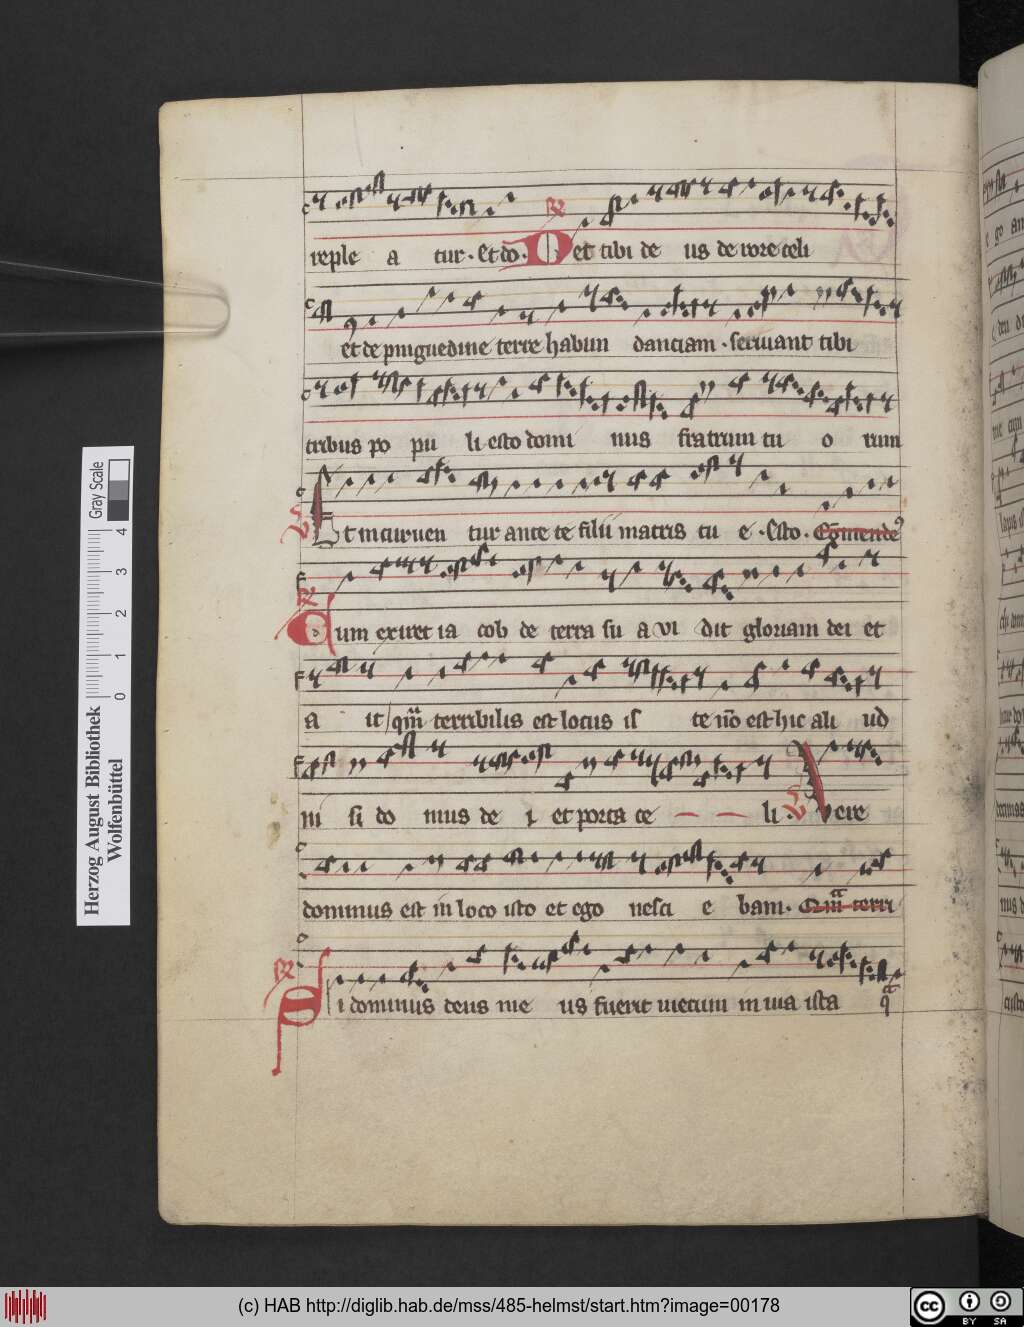 reple a tur · Et do · Det tibi de us de rore celi
et de pinguedine terre habun danciam · seruiant tibi
tribus po pu li esto domi nus fratrum tu o rum
Et incuruen tur ante te filii matris tu e · Esto ·
Cum exiret ia cob de terra su a vi dit gloriam dei et
a it qm̄ terribilis est locus is te nō est hic ali ud
ni si do mus de i et porta ce li · Vere
dominus est in loco isto et ego nesci e bam · Qm̄ terri
Si dominus deus me us fuerit mecum in uia ista
Gray Scale
4 3 2 1 0
Herzog August Bibliothek
Wolfenbüttel
(c) HAB http://diglib.hab.de/mss/485-helmst/start.htm?image=00178
cc BY SA